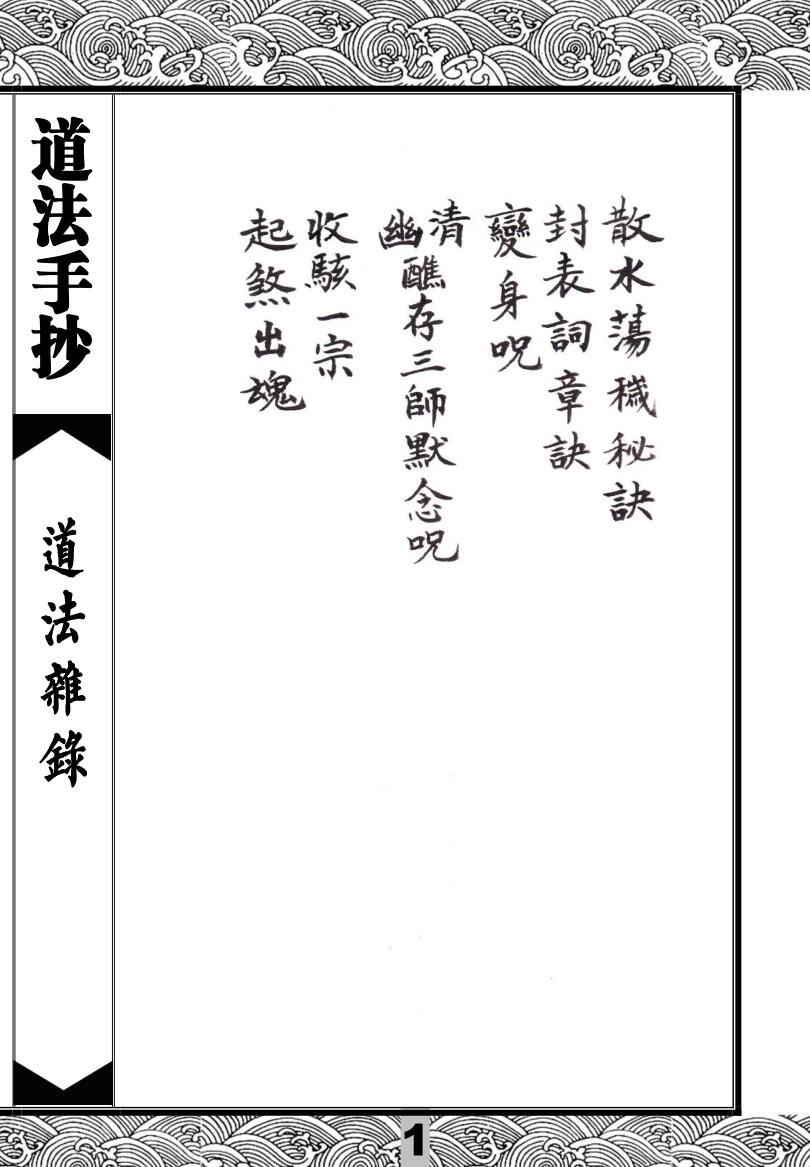 散水蕩穢秘訣
封表詞章訣
變身呪
清
幽醮存三師默念呪
收駭一宗
起煞出魂
道法手抄
道法雜錄
1